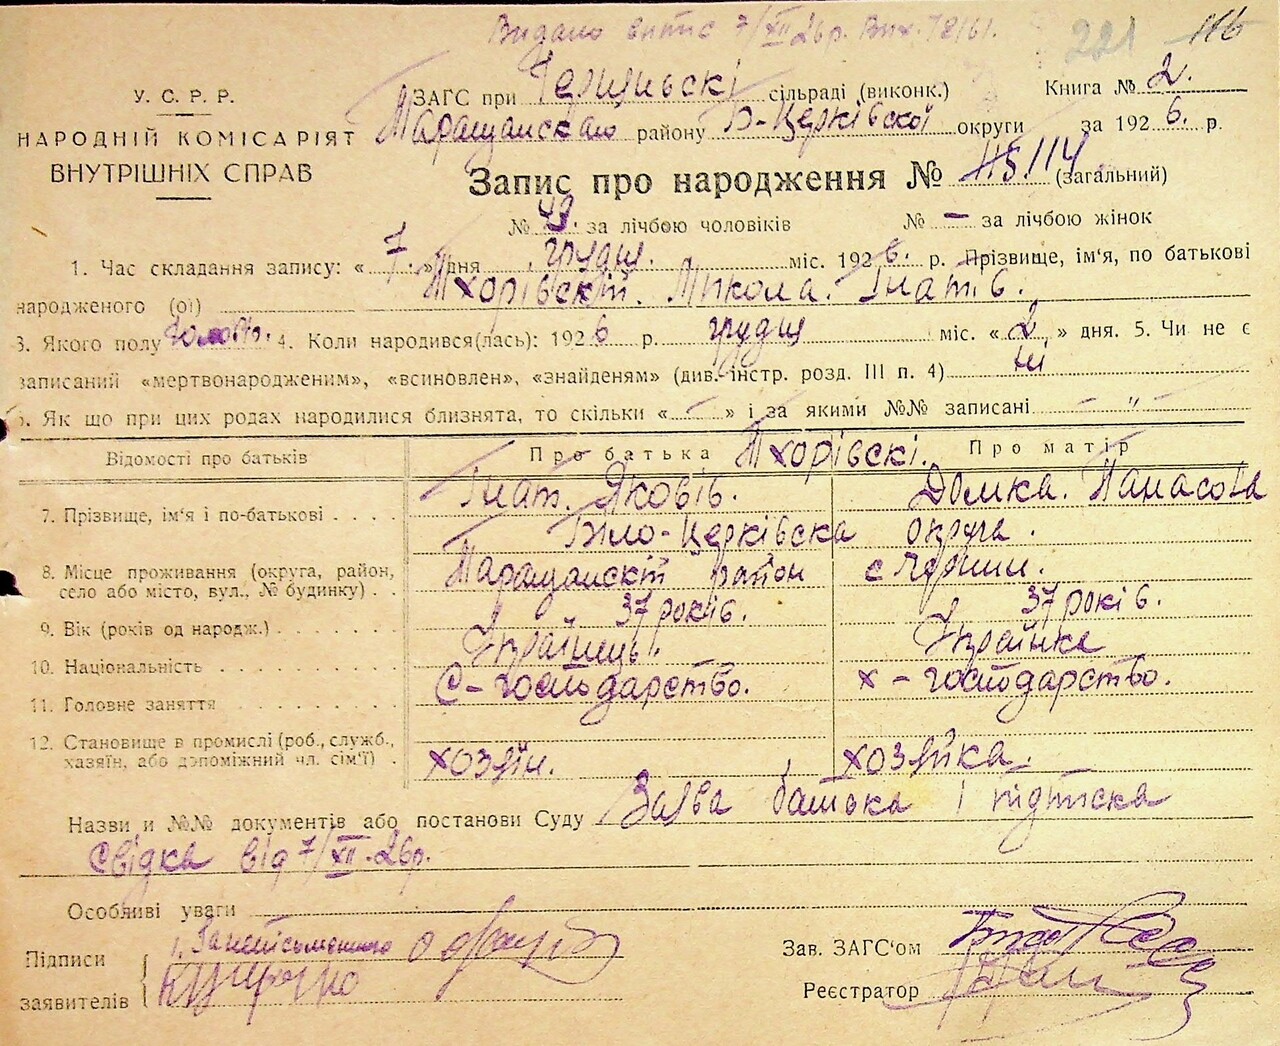 Видано витяг 7/XII 26р. Вих. 78/61.
221 116
У. С. Р. Р.
НАРОДНІЙ КОМІСАРІЯТ
ВНУТРІШНІХ СПРАВ
ЗАГС при сільраді (виконк.) Книга № 2.
Таращанскаго району Б-Церківської округи за 1926. р.
Запис про народження № 115. 114 (загальний)
№ 43. за лічбою чоловіків № — за лічбою жінок
1. Час складання запису: « 7. » дня грудн. міс. 1926. р. Прізвище, ім'я, по батькові
народженого (ої) Тхорівскій. Микола. Гнатів.
3. Якого полу чолов. 4. Коли народився(лась): 1926 р. грудн міс. « 2 » дня. 5. Чи не є
записаний «мертвонародженим», «всиновлен», «знайденям» (див. інстр. розд. III п. 4) ні
6. Як що при цих родах народилися близнята, то скільки « - » і за якими №№ записані - „ -
Відомості про батьків Про батька Тхорівскі. Про матір
7. Прізвище, ім'я і по-батькові . . . . Гнат. Яковів. Домка. Панасова
Біло-Церківска округа.
8. Місце проживання (округа, район, Таращанскій район с Чернин.
село або місто, вул., № будинку) . .
9. Вік (років од народж.) . . . . . . . 37 років. 37 років.
10. Національність . . . . . . . . . Українець. Українка
11. Головне заняття . . . . . . . . С-господарство. х-господарство.
12. Становище в промислі (роб., служб.,
хазяїн, або допоміжний чл. сім'ї) . хозяїн. хозяйка.
Назви и №№ документів або постанови Суду Заява батька і підписка
свідка від 7/XII-26р.
Особливі уваги
Підписи 1. Зав. ЗАГС'ом
заявителів Реєстратор